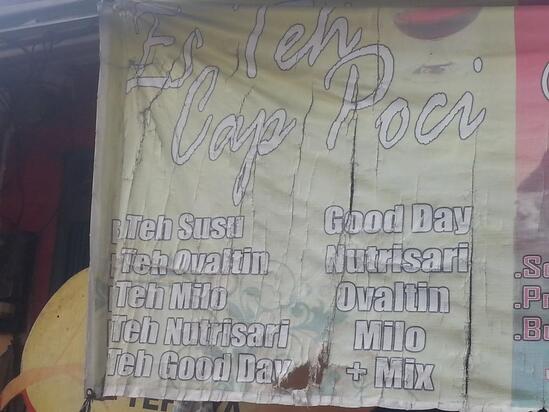 Es Teh
Cap Poci
Teh Susu
Teh Ovaltin
Teh Milo
Teh Nutrisari
Teh Good Day
Good Day
Nutrisari
Ovaltin
Milo
+ Mix